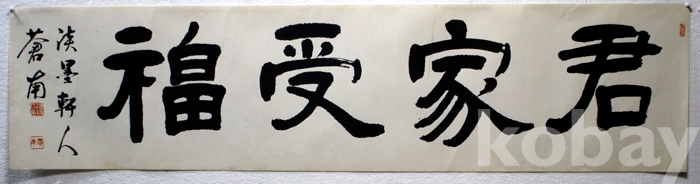 君家受福
淡墨軒人
蒼南
kobay